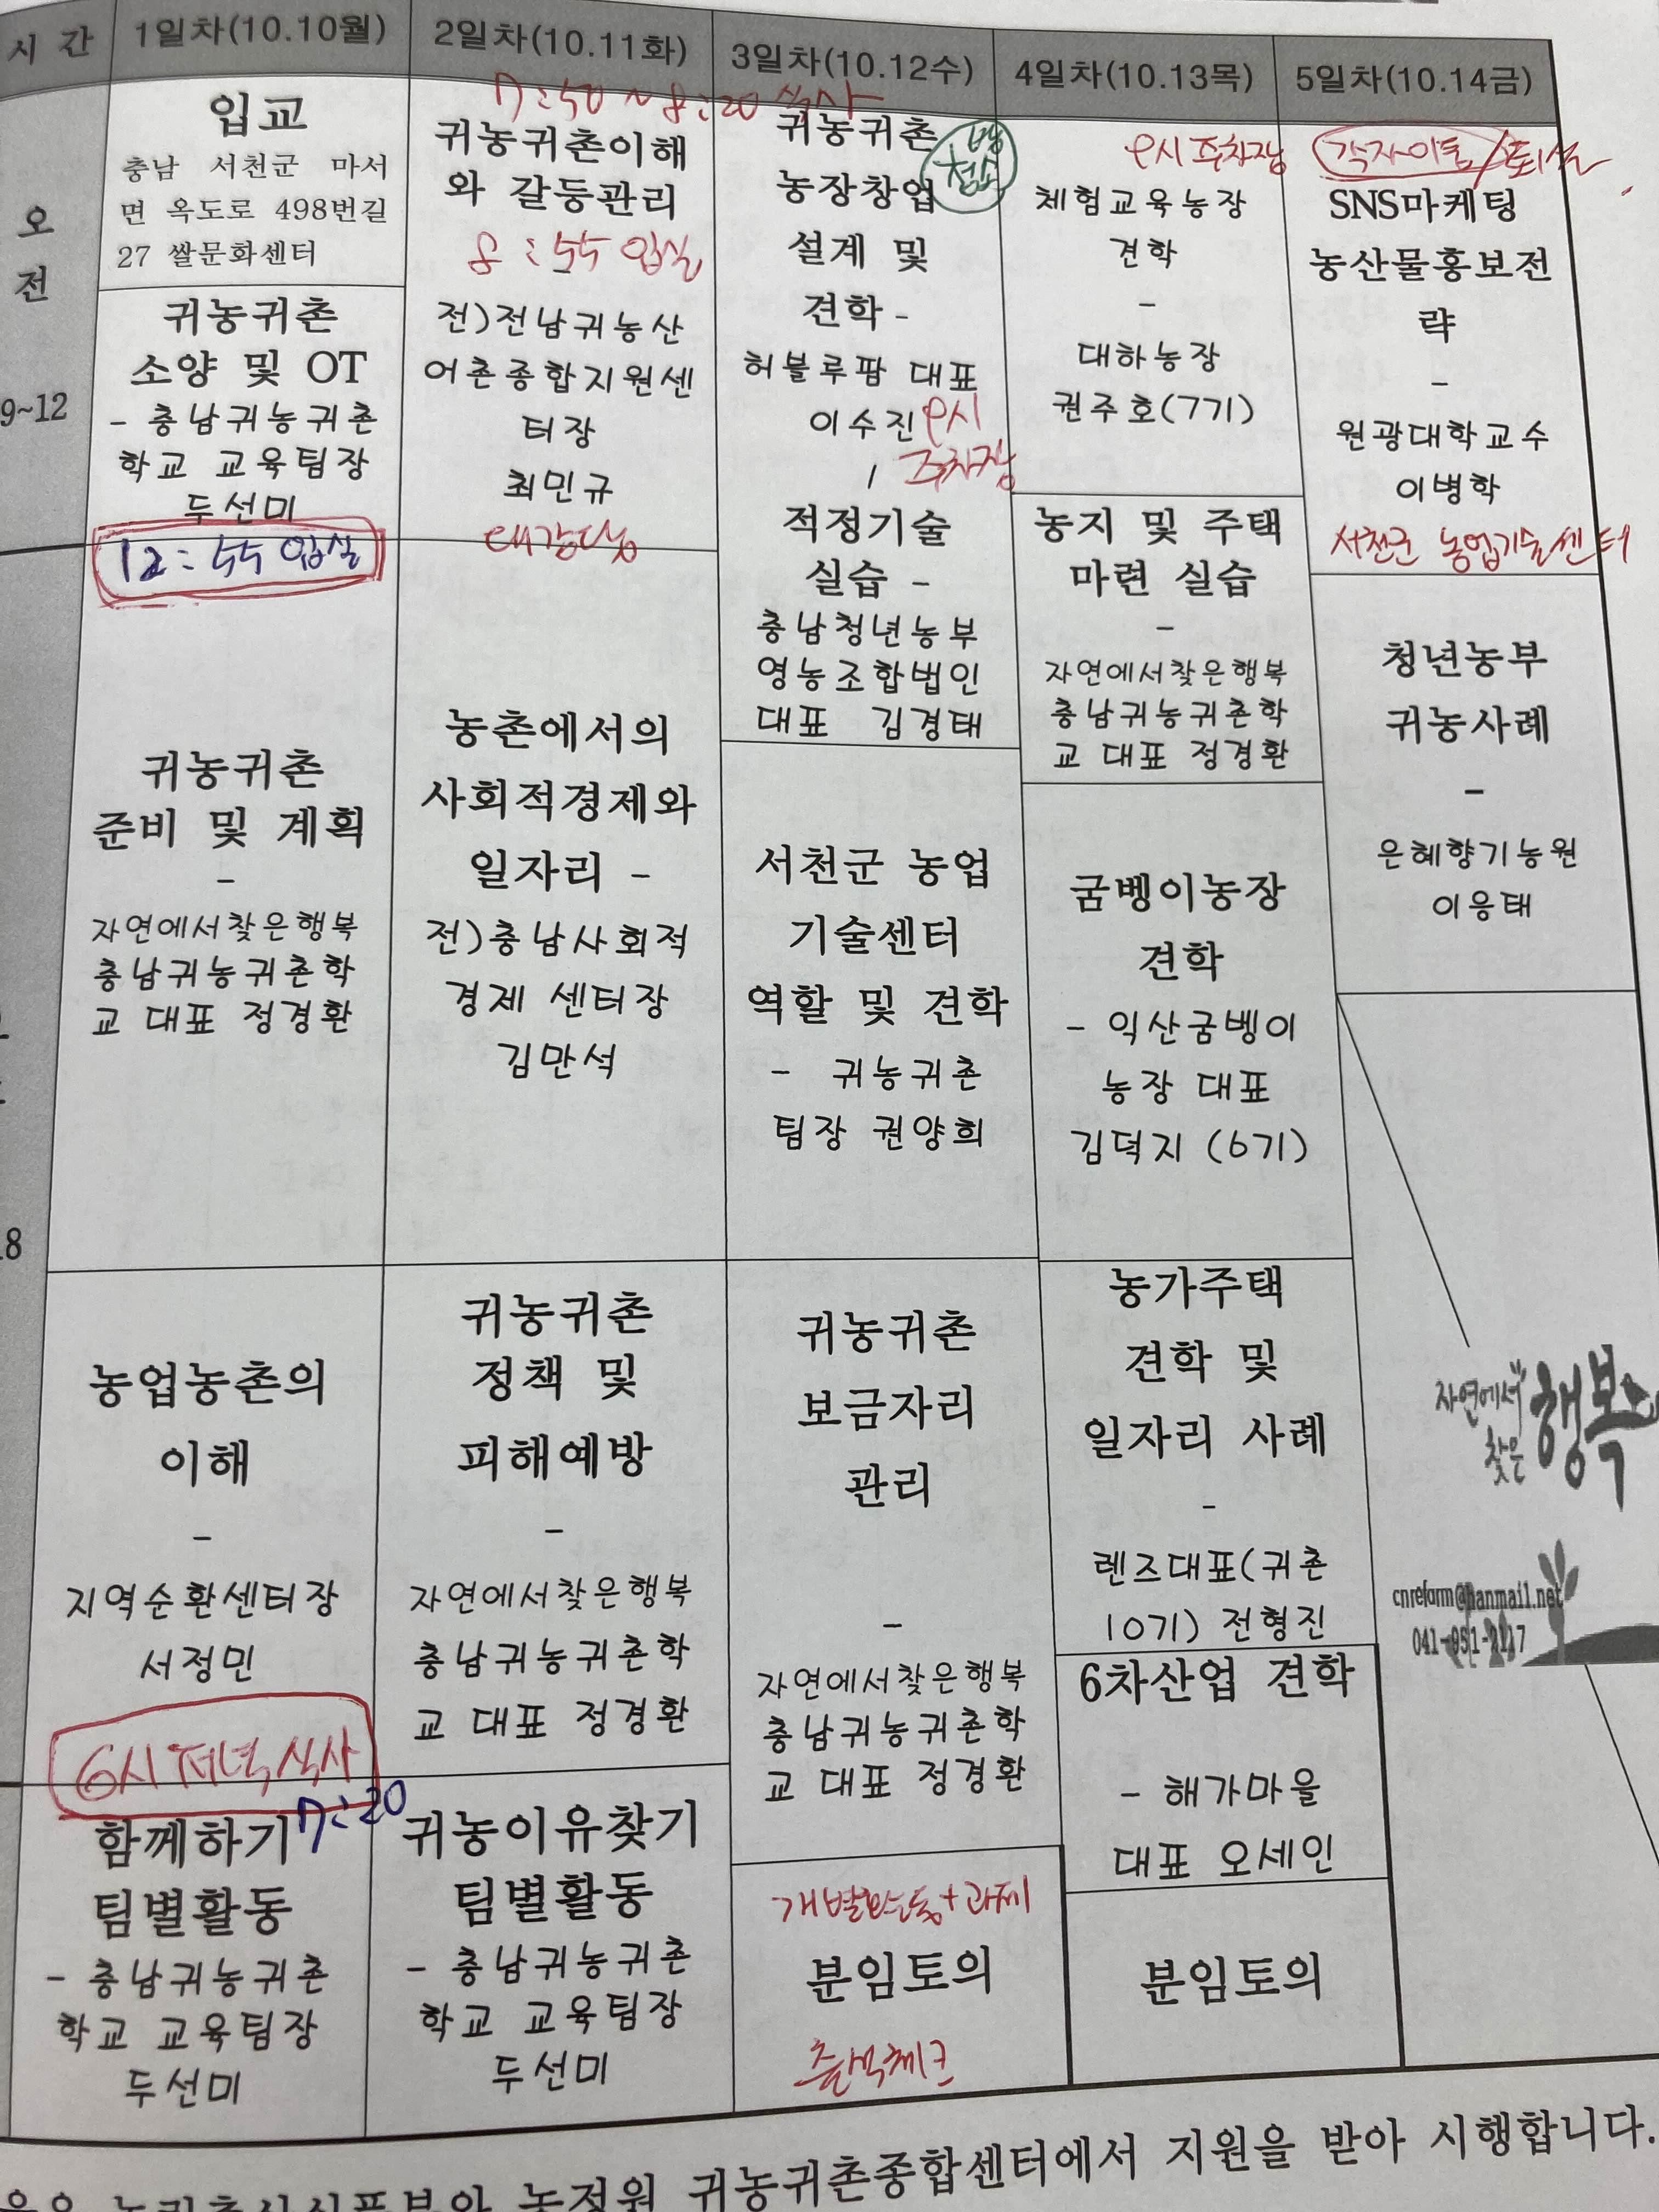 시 간
1일차(10.10월)
2일차(10.11화)
3일차(10.12수)
4일차(10.13목)
5일차(10.14금)
오
전
9~12
입교
충남 서천군 마서
면 옥도로 498번길
27 쌀문화센터
귀농귀촌
소양 및 OT
- 충남귀농귀촌
학교 교육팀장
두선미
12:55 입실
귀농귀촌
준비 및 계획
-
자연에서찾은행복
충남귀농귀촌학
교 대표 정경환
농업농촌의
이해
-
지역순환센터장
서정민
6시 저녁식사
7:20
함께하기
팀별활동
- 충남귀농귀촌
학교 교육팀장
두선미
7:50~8:20 식사
귀농귀촌이해
와 갈등관리
8:55 입실
전)전남귀농산
어촌종합지원센
터장
최민규
대강당
농촌에서의
사회적경제와
일자리 -
전)충남사회적
경제 센터장
김만석
귀농귀촌
정책 및
피해예방
-
자연에서찾은행복
충남귀농귀촌학
교 대표 정경환
귀농이유찾기
팀별활동
- 충남귀농귀촌
학교 교육팀장
두선미
귀농귀촌
농장창업
방
청소
설계 및
견학 -
허블루팜 대표
이수진
9시
주차장
적정기술
실습 -
충남청년농부
영농조합법인
대표 김경태
서천군 농업
기술센터
역할 및 견학
- 귀농귀촌
팀장 권양희
귀농귀촌
보금자리
관리
-
자연에서찾은행복
충남귀농귀촌학
교 대표 정경환
개별활동+과제
분임토의
출석체크
9시 주차장
체험교육농장
견학
-
대하농장
권주호(7기)
농지 및 주택
마련 실습
-
자연에서찾은행복
충남귀농귀촌학
교 대표 정경환
굼벵이농장
견학
- 익산굼벵이
농장 대표
김덕지 (6기)
농가주택
견학 및
일자리 사례
-
렌즈대표(귀촌
10기) 전형진
6차산업 견학
- 해가마을
대표 오세인
분임토의
각자이동/퇴실
SNS마케팅
농산물홍보전
략
-
원광대학교수
이병학
서천군 농업기술센터
청년농부
귀농사례
-
은혜향기농원
이응태
자연에서
찾은 행복
cnreform@hanmail.net
귀농귀촌종합센터에서 지원을 받아 시행합니다.